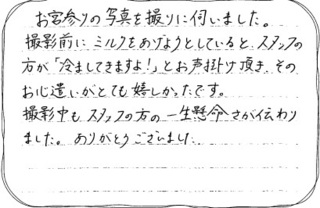 お宮参りの写真を撮りに伺いました。
撮影前に、ミルクをあげようとしていると、スタッフの
方が「冷ましてきますよ!」とお声掛け頂き、その
お心遣いがとても嬉しかったです。
撮影中も、スタッフの方の一生懸命さが伝わり
ました。ありがとうございました